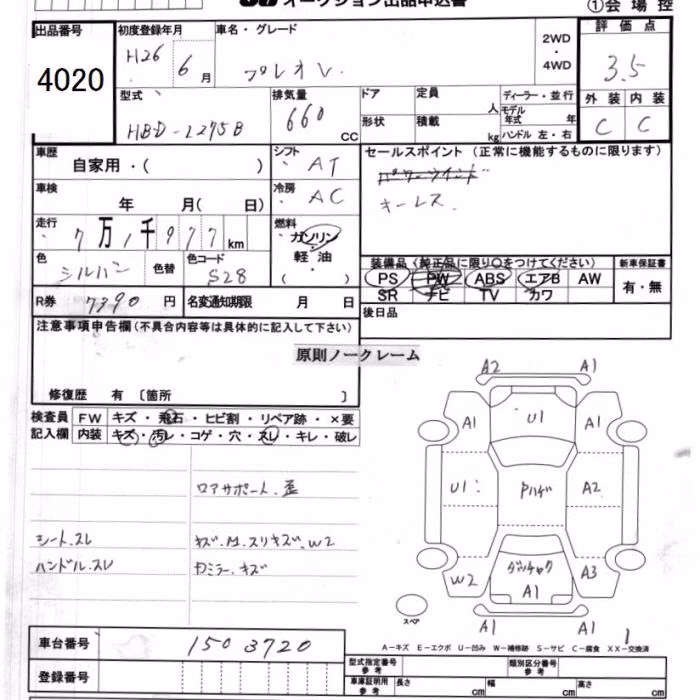 オークション出品申込書
①会場控
出品番号
4020
初度登録年月
H26 6 月
車名・グレード
プレオ V
2WD
・
4WD
評価点
3.5
型式
HBD-L275B
排気量
660 CC
ドア
形状
定員 人
積載 kg
ディーラー・並行
モデル年式 年
ハンドル 左・右
外装 内装
C C
車歴
自家用・( )
シフト
AT
車検
年 月( 日)
冷房
AC
走行
7万1千977 km
燃料
ガソリン
・
軽油
・
( )
色
シルバー
色替
色コード
S28
セールスポイント(正常に機能するものに限ります)
パワーウインド
キーレス
装備品(純正品に限り○をつけてください)
PS PW ABS エアB AW
SR ナビ TV カワ
新車保証書
有・無
R券 7390 円
名変通知期限 月 日
後日品
注意事項申告欄(不具合内容等は具体的に記入して下さい)
原則ノークレーム
修復歴 有 〔箇所 〕
検査員
記入欄
FW キズ・飛石・ヒビ割・リペア跡・×要
内装 キズ・汚レ・コゲ・穴・スレ・キレ・破レ
ロアサポート、歪
シート、スレ
キズ、M、スリキズ、W2
ハンドル、スレ
Dミラー、キズ
A2 A1
A1 U1 A1
U1 Pハゲ A2
W2 ダッチャク A1 A3
スペア
A1 A1
A-キズ E-エクボ U-凹み W-補修跡 S-サビ C-腐食 XX-交換済
車台番号
1503720
登録番号
型式指定番号
参考
類別区分番号
参考
車庫証明用
参考
長さ cm
幅 cm
高さ cm